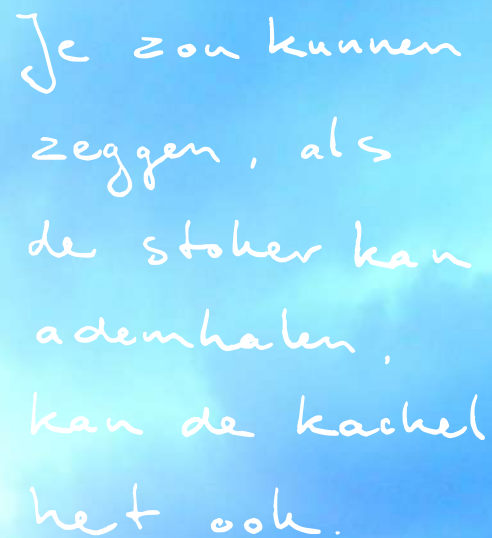 Je zou kunnen
zeggen, als
de stoker kan
ademhalen,
kan de kachel
het ook.